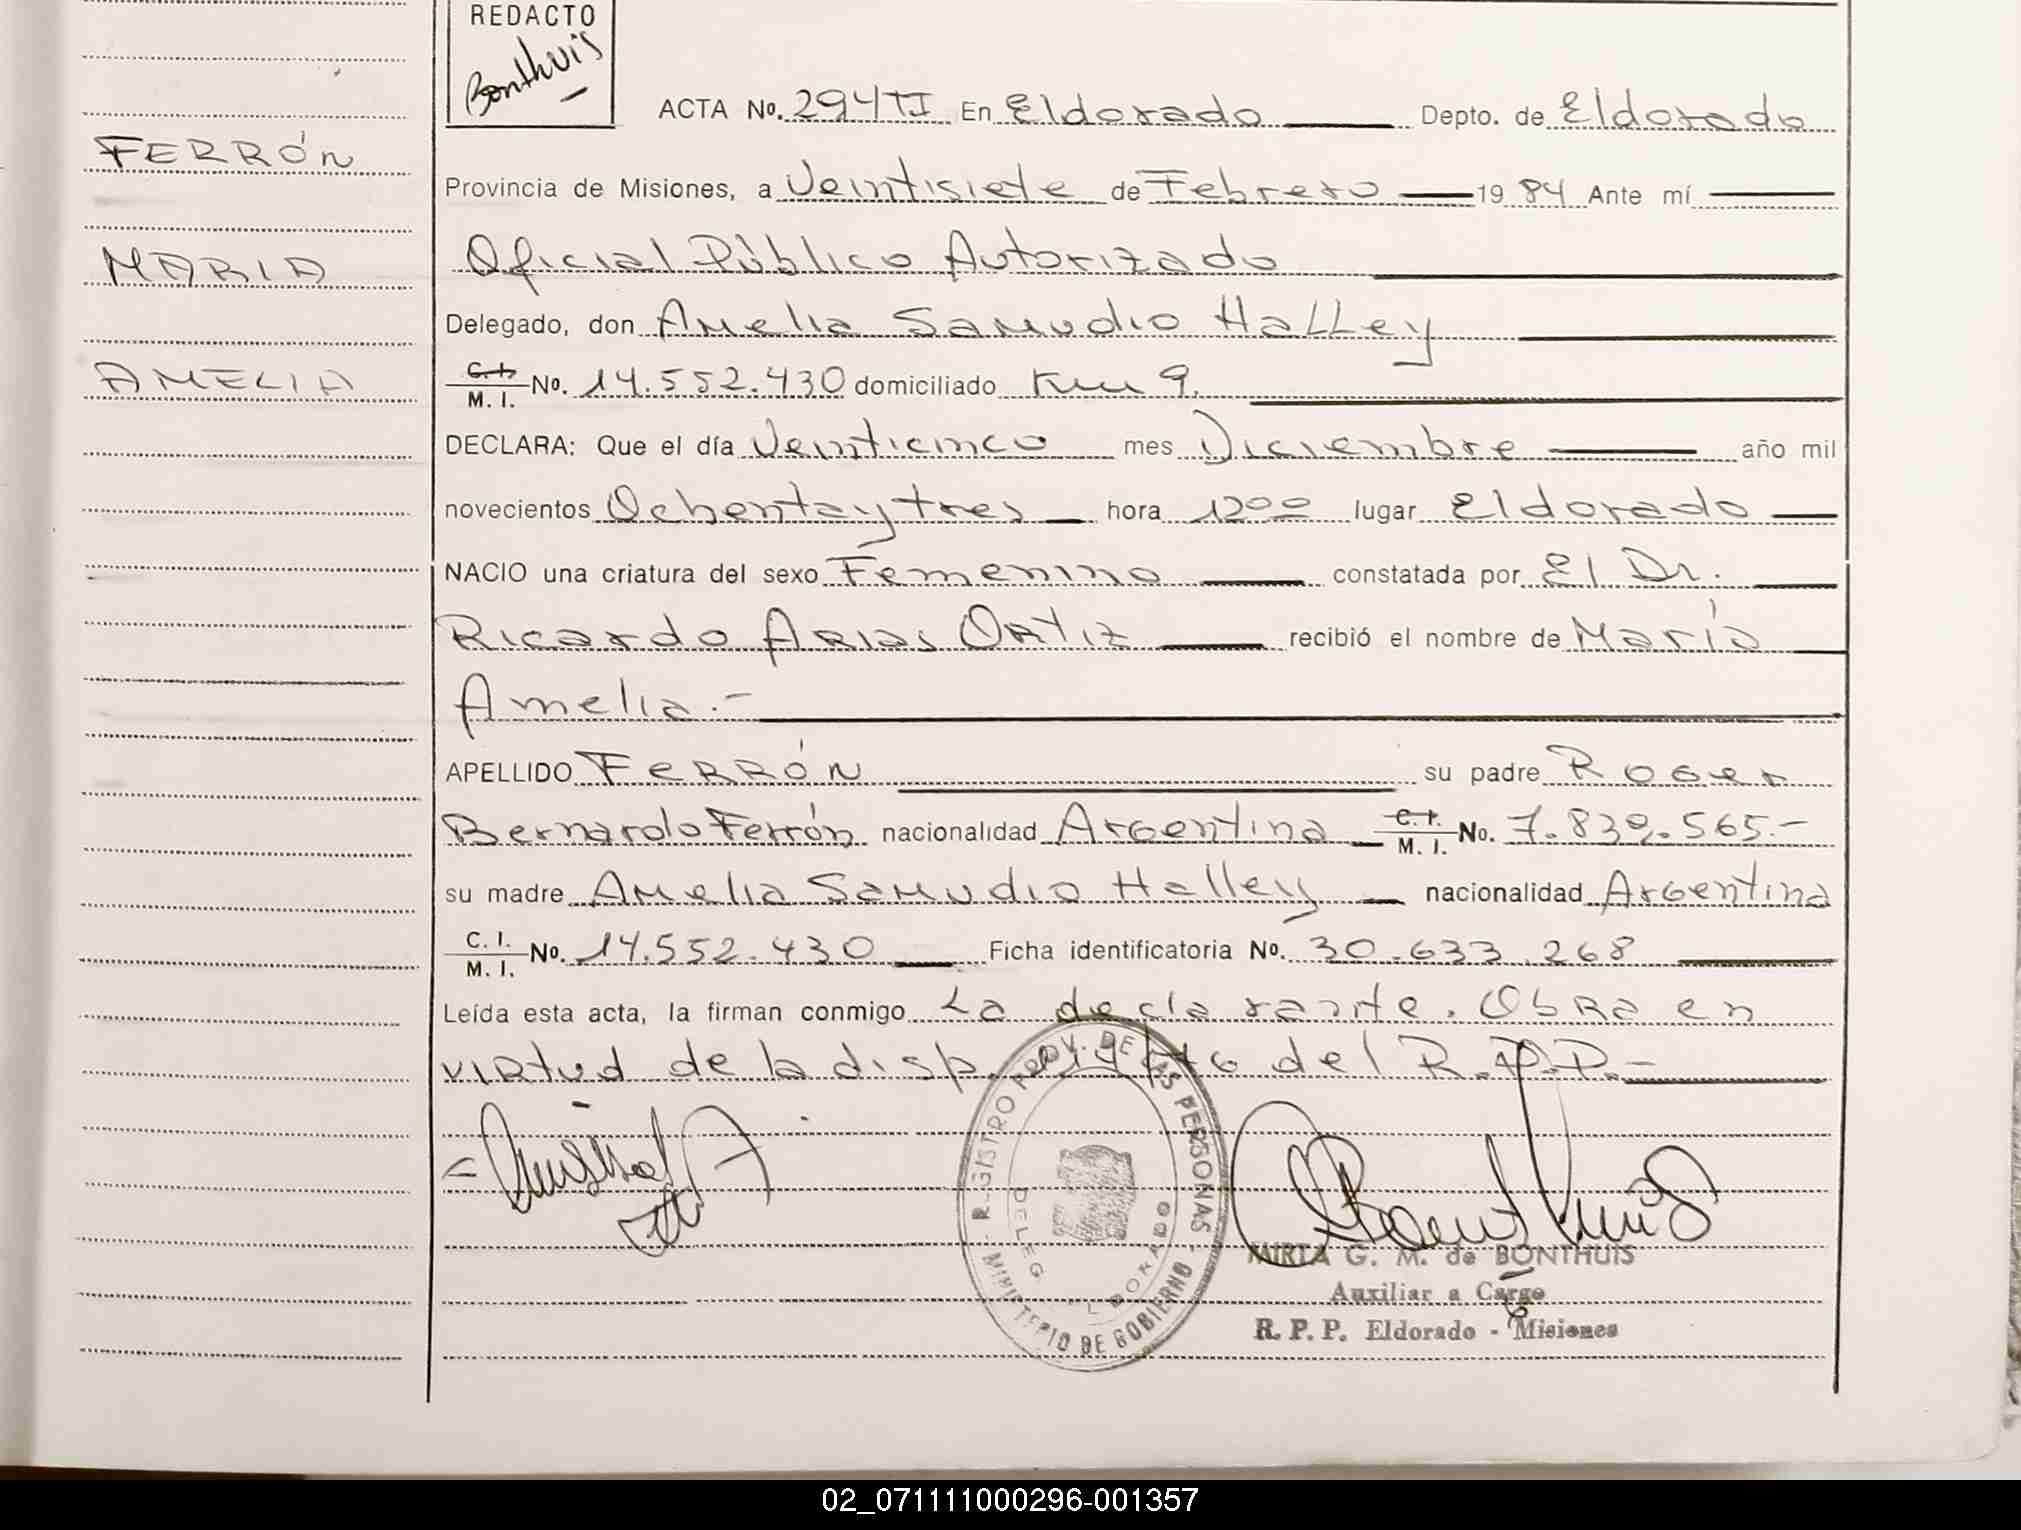 REDACTO
Bonthuis
ACTA No. 294 TI En Eldorado Depto. de Eldorado
FERRÓN
Provincia de Misiones, a Veintisiete de Febrero 19 84 Ante mí
MARIA
Oficial Público Autorizado
Delegado, don Amelia Samudio Halley
AMELIA
C. I. M. I. No. 14.552.430 domiciliado Km 9.
DECLARA: Que el día Veinticinco mes Diciembre año mil
novecientos Ochentaytres hora 1200 lugar Eldorado
NACIO una criatura del sexo Femenino constatada por El Dr.
Ricardo Arias Ortiz recibió el nombre de María
Amelia.-
APELLIDO FERRÓN su padre Roger
Bernardo Ferrón nacionalidad Argentina C. I. M. I. No. 7.839.565.-
su madre Amelia Samudio Halley nacionalidad Argentina
C. I. M. I. No. 14.552.430 Ficha identificatoria No. 30.633.268
Leída esta acta, la firman conmigo La declarante. Obra en
virtud de la disp. del R.P.P.-
REGISTRO PROV. DE LAS PERSONAS
MINISTERIO DE GOBIERNO
DELEG. ELDORADO
MIRTA G. M. de BONTHUIS
Auxiliar a Cargo
R. P. P. Eldorado - Misiones
02_071111000296-001357